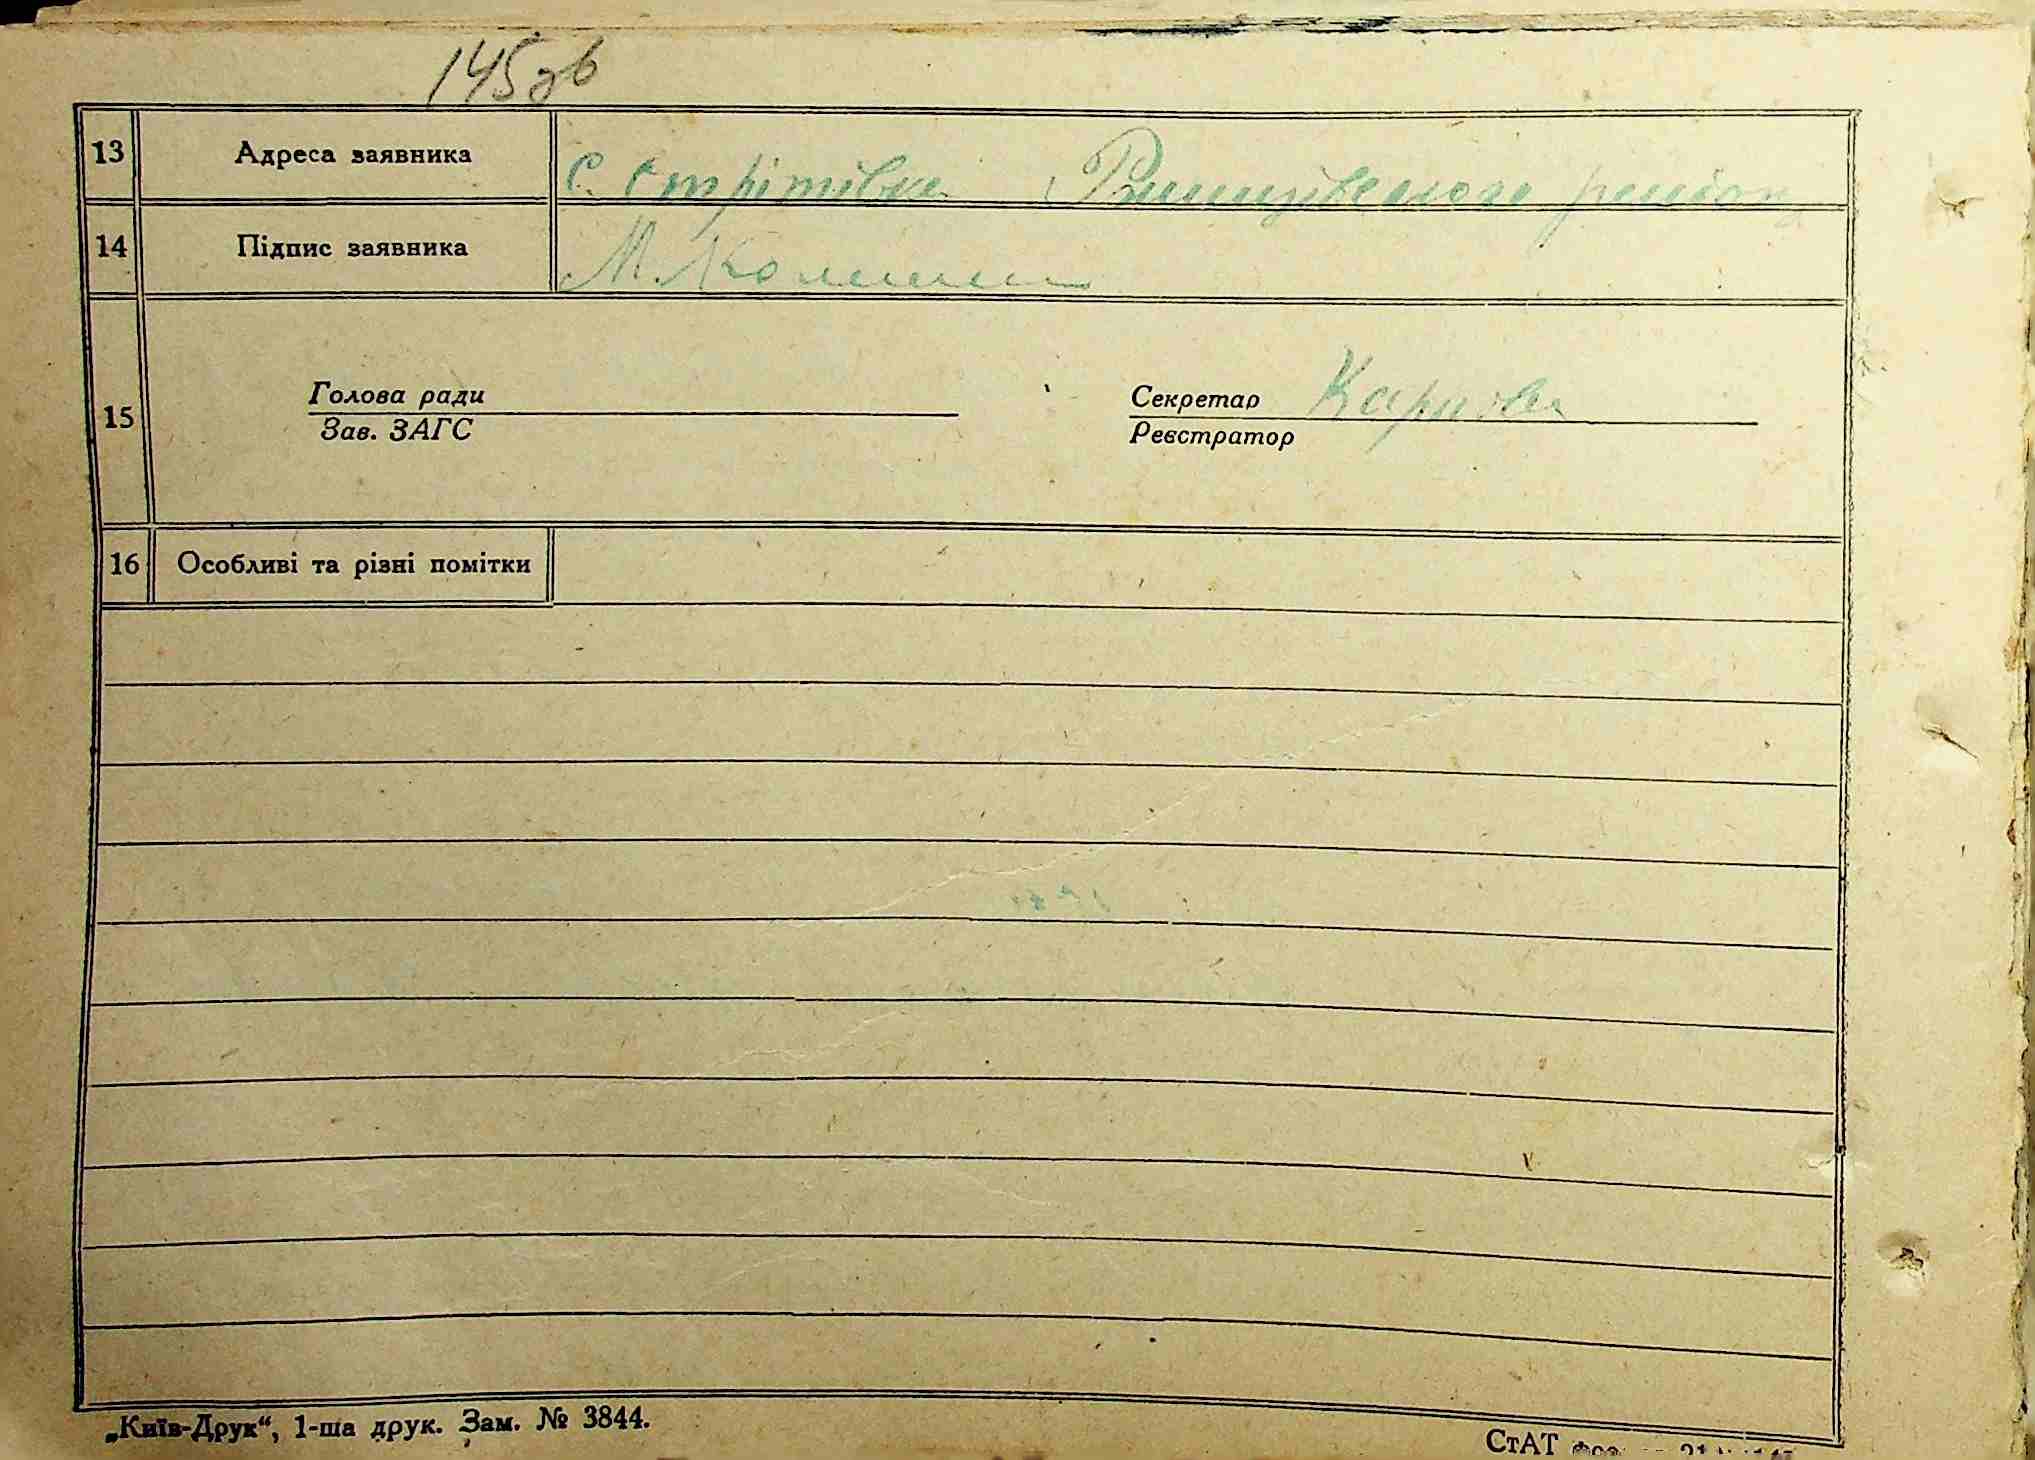 145 зв
13 Адреса заявника с. Стрітівка Ржищівського району
14 Підпис заявника М.
15 Голова ради Секретар Карпова
Зав. ЗАГС Реєстратор
16 Особливі та різні помітки
„Київ-Друк“, 1-ша друк. Зам. № 3844. СтАТ